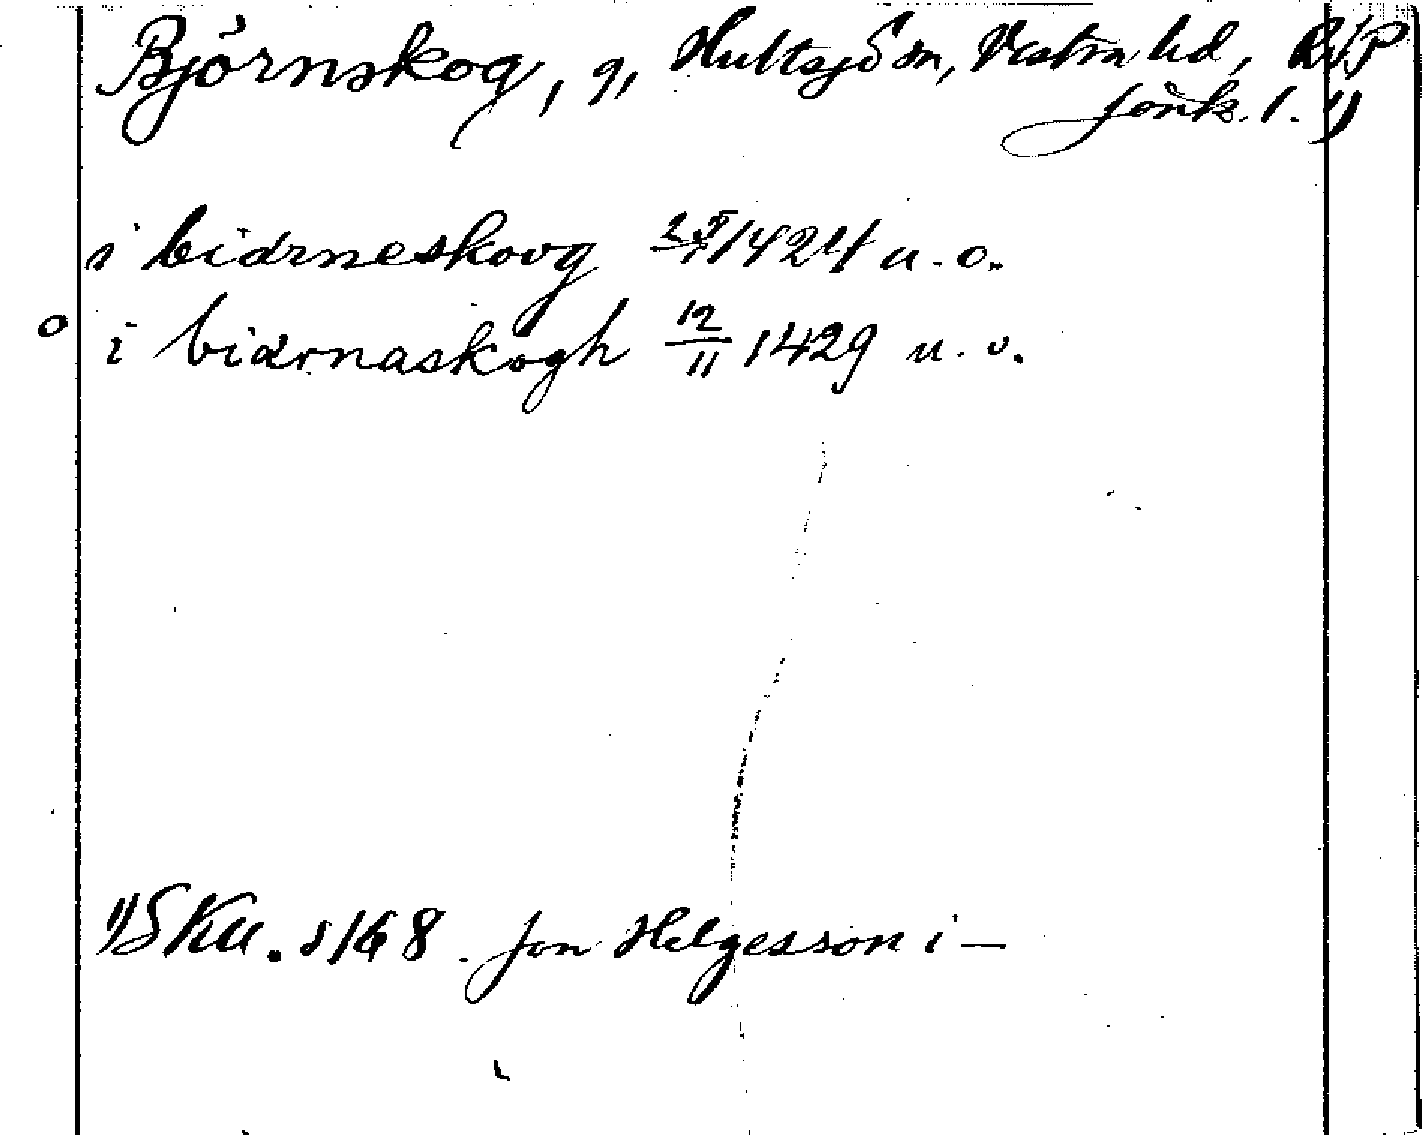 Björnskog, g, Hultsjö sn, Västra hd,
Jönk. l. 1)
i bidrneskovg 25/4 1424 u. o.
o i bidrnaskogh 12/11 1429 u. o.
1) SRA. s 168. Jon Helgesson i —